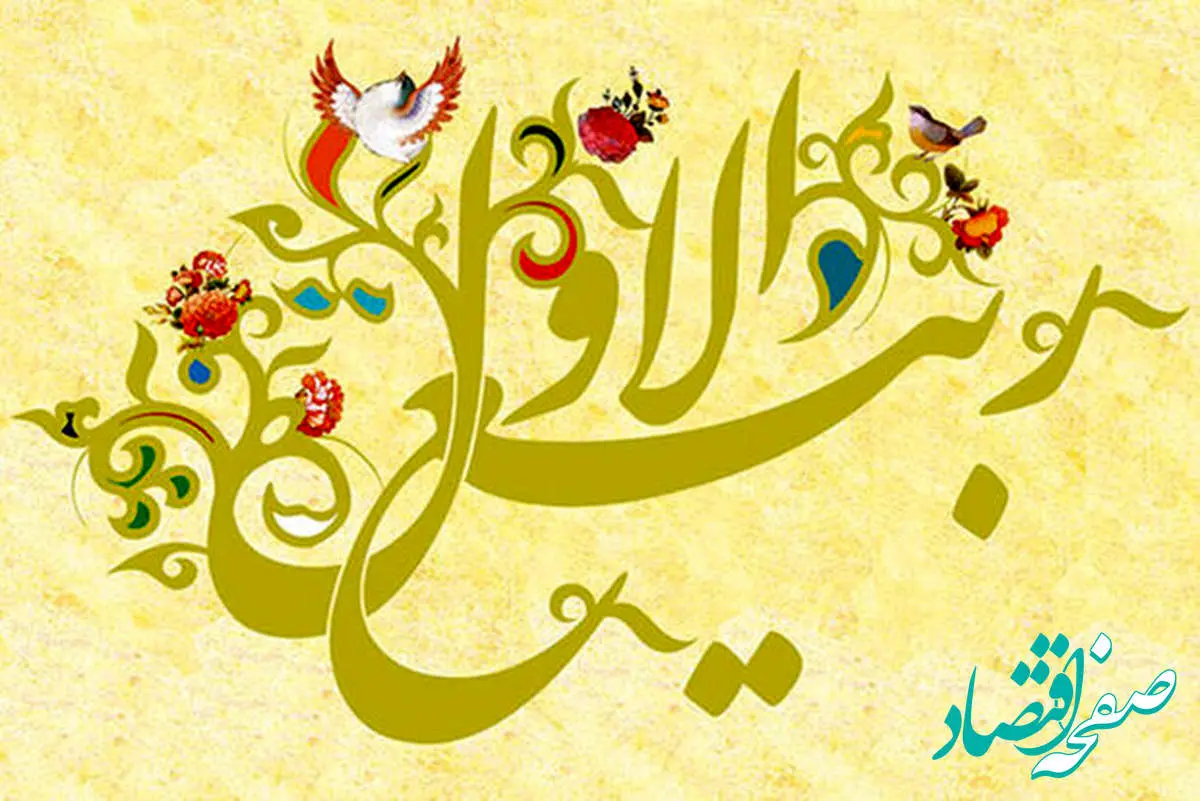 ربیع الاول
صفحه اقتصاد